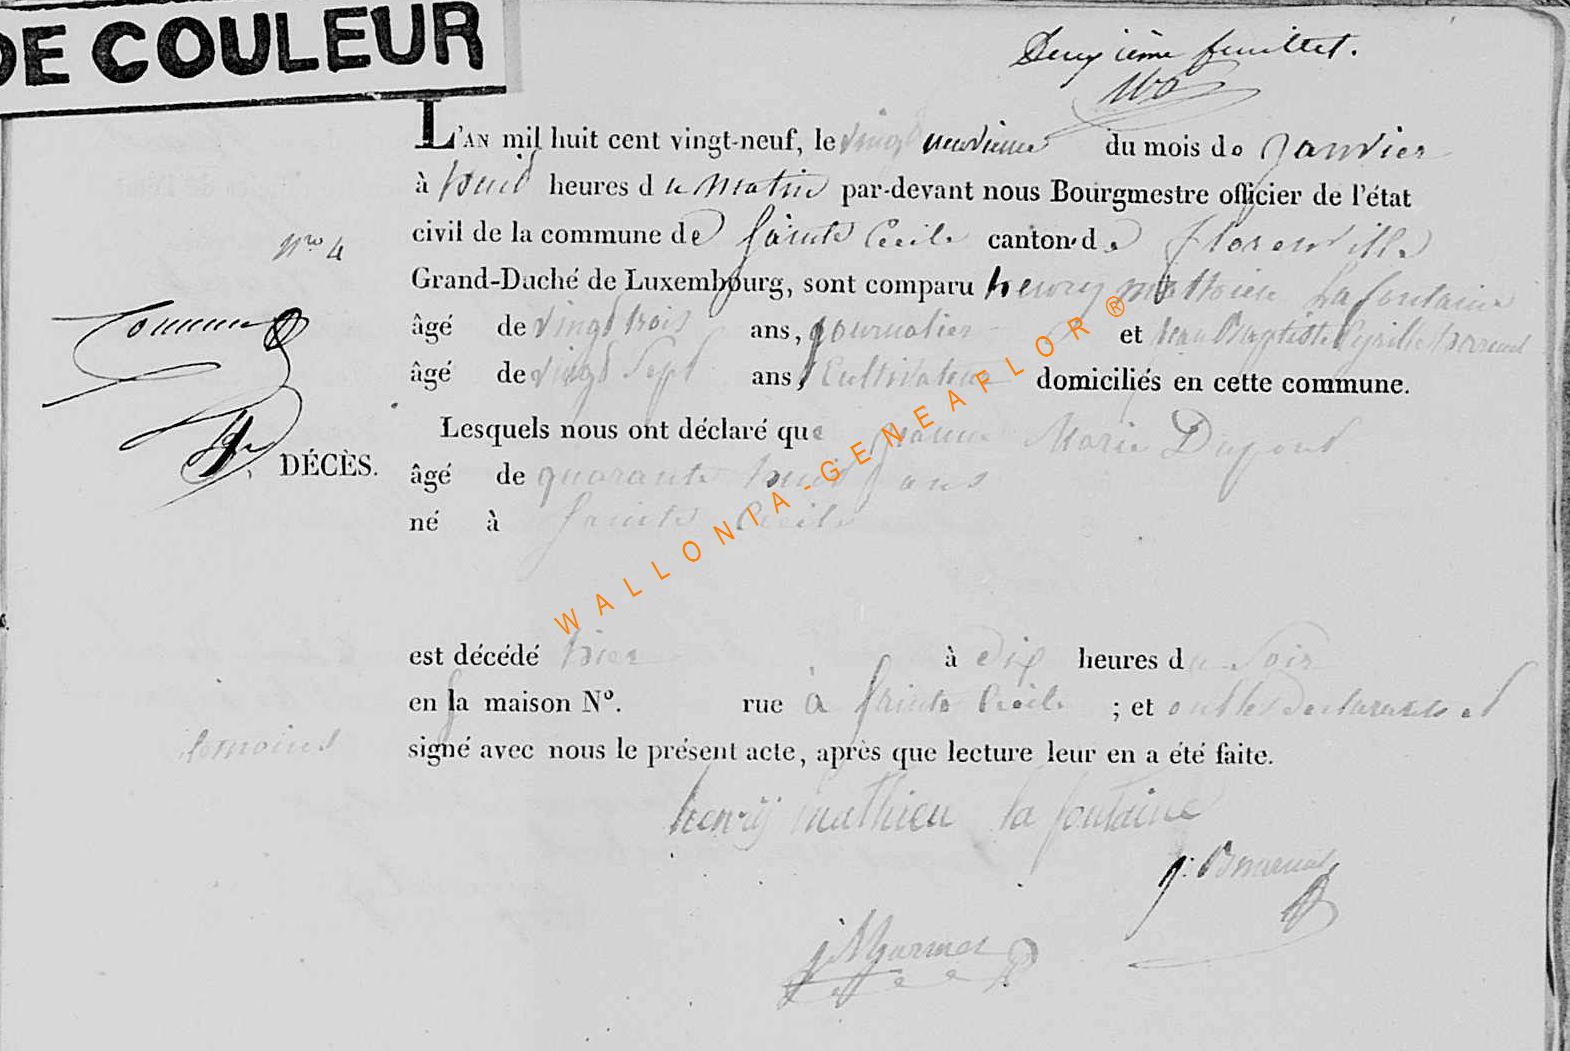 DE COULEUR
Deuxième feuillet.
L'AN mil huit cent vingt-neuf, le vingt neuvieme du mois de Janvier
à huit heures du Matin par-devant nous Bourgmestre officier de l'état
civil de la commune de Sainte Cecile canton de florenville
Nro 4
Grand-Duché de Luxembourg, sont comparu henry mathieu Lafontaine
âgé de vingt trois ans, journalier et Jean Baptiste
âgé de vingt Sept ans, Cultivateur domiciliés en cette commune.
Lesquels nous ont déclaré que Jeanne Marie Dupont
DÉCÈS.
âgé de quarante huit ans
né à Sainte Cecile
WALLONIA-GENEAFLOR ®
est décédé hier à dix heures du Soir
en la maison No. rue à Sainte Cecile ; et ont les declarants et
temoins signé avec nous le présent acte, après que lecture leur en a été faite.
henrÿ mathieu la fontaine